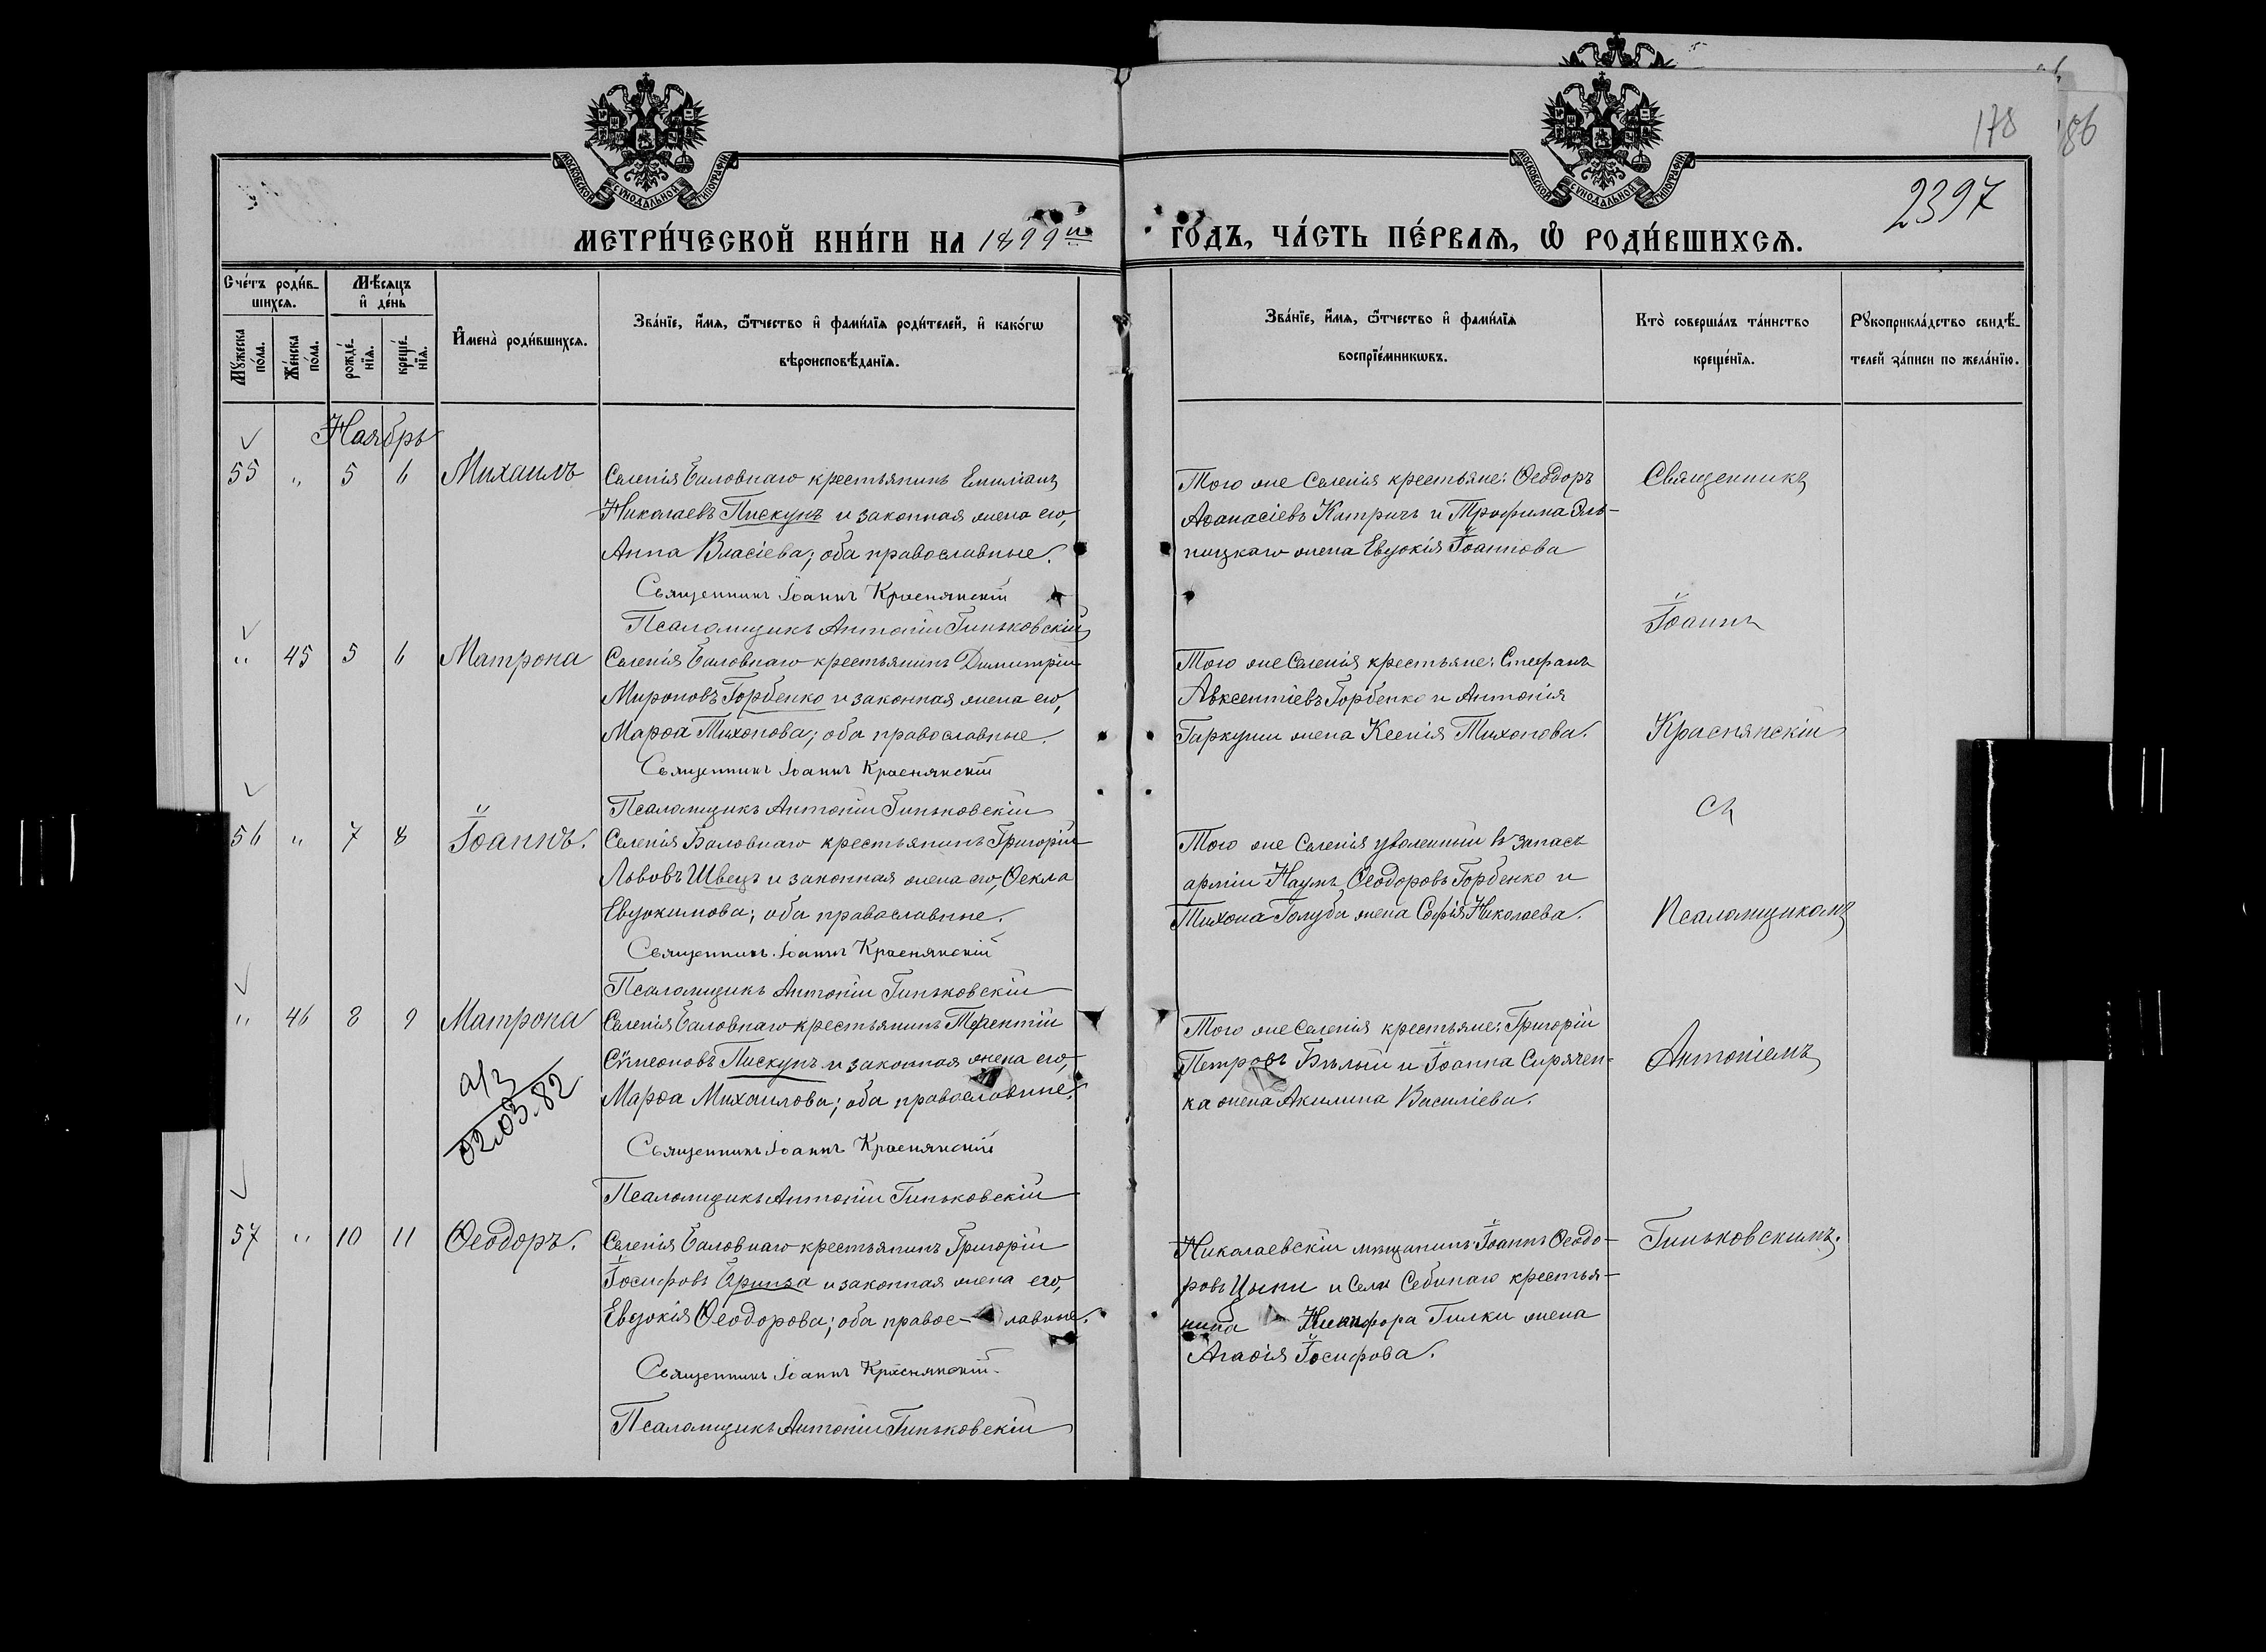 178 186
2397
МОСКОВСКОЙ СѴНОДАЛЬНОЙ ТИПОГРАФІИ
МОСКОВСКОЙ СѴНОДАЛЬНОЙ ТИПОГРАФІИ
МЕТРИ́ЧЕСКОЙ КНИ́ГИ НА 1899й ГО́ДЪ, ЧА́СТЬ ПЕ́РВАѦ, Ѽ РОДИ́ВШИХСѦ.
Сче́тъ роди́в-
шихсѧ.
Мꙋ́жеска по́ла.
Же́нска по́ла.
Мѣ́сѧцъ
и҆ де́нь
рожде́-
нїѧ.
креще́-
нїѧ.
И҆мена̀ роди́вшихсѧ.
Зва́нїе, и҆́мѧ, ѻ҆́тчество и҆ фами́лїѧ роди́телей, и҆ како́гѡ
вѣроисповѣ́данїѧ.
Зва́нїе, и҆́мѧ, ѻ҆́тчество и҆ фами́лїѧ
воспрїе́мникѡвъ.
Кто̀ соверша́лъ та́инство
креще́нїѧ.
Рꙋкоприкла́дство свидѣ́-
телей за́писи по жела́нїю.
Ноябрь
55 " 5 6 Михаилъ
Селенія Баловнаго крестьянинъ Емиліанъ
Николаевъ Пискунъ и законная жена его,
Анна Власіева; оба православные.
Священникъ Іоаннъ Краснянскій
Псаломщикъ Антоній Гиньковскій
Того же Селенія крестьяне: Ѳеодоръ
Аѳанасіевъ Катричъ и Трофима Яль-
ницкаго жена Евдокія Іоаннова
" 45 5 6 Матрона
Селенія Баловнаго крестьянинъ Димитрій
Мироновъ Горбенко и законная жена его,
Марѳа Тихонова; оба православные.
Священникъ Іоаннъ Краснянскій
Псаломщикъ Антоній Гиньковскій
Того же Селенія крестьяне: Стефанъ
Авксентіевъ Горбенко и Антонія
Гаркуши жена Ксенія Тихонова.
56 " 7 8 Іоаннъ.
Селенія Баловнаго крестьянинъ Григорій
Львовъ Швецъ и законная жена его, Ѳекла
Евдокимова; оба православные.
Священникъ Іоаннъ Краснянскій
Псаломщикъ Антоній Гиньковскій
Того же Селенія уволенный въ запасъ
арміи Наумъ Ѳеодоровъ Горбенко и
Тихона Голуба жена Софія Николаева.
" 46 8 9 Матрона
а/з
02.03.82
Селенія Баловнаго крестьянинъ Терентій
Сѵмеоновъ Пискунъ и законная жена его,
Марѳа Михаилова; оба православные.
Священникъ Іоаннъ Краснянскій
Псаломщикъ Антоній Гиньковскій
Того же Селенія крестьяне: Григорій
Петровъ Бѣлый и Іоанна Сирячен-
ка жена Акилина Василіева.
57 " 10 11 Ѳеодоръ.
Селенія Баловнаго крестьянинъ Григорій
Іосифовъ Бринза и законная жена его,
Евдокія Ѳеодорова; оба правос- лавные.
Священникъ Іоаннъ Краснянскій
Псаломщикъ Антоній Гиньковскій
Николаевскій мѣщанинъ Іоаннъ Ѳеодо-
ровъ и Села Себинаго крестья-
нина Никифора Гилки жена
Агаѳія Іосифова.
Священникъ
Іоаннъ
Краснянскій
съ
Псаломщикомъ
Антоніемъ
Гиньковскимъ.